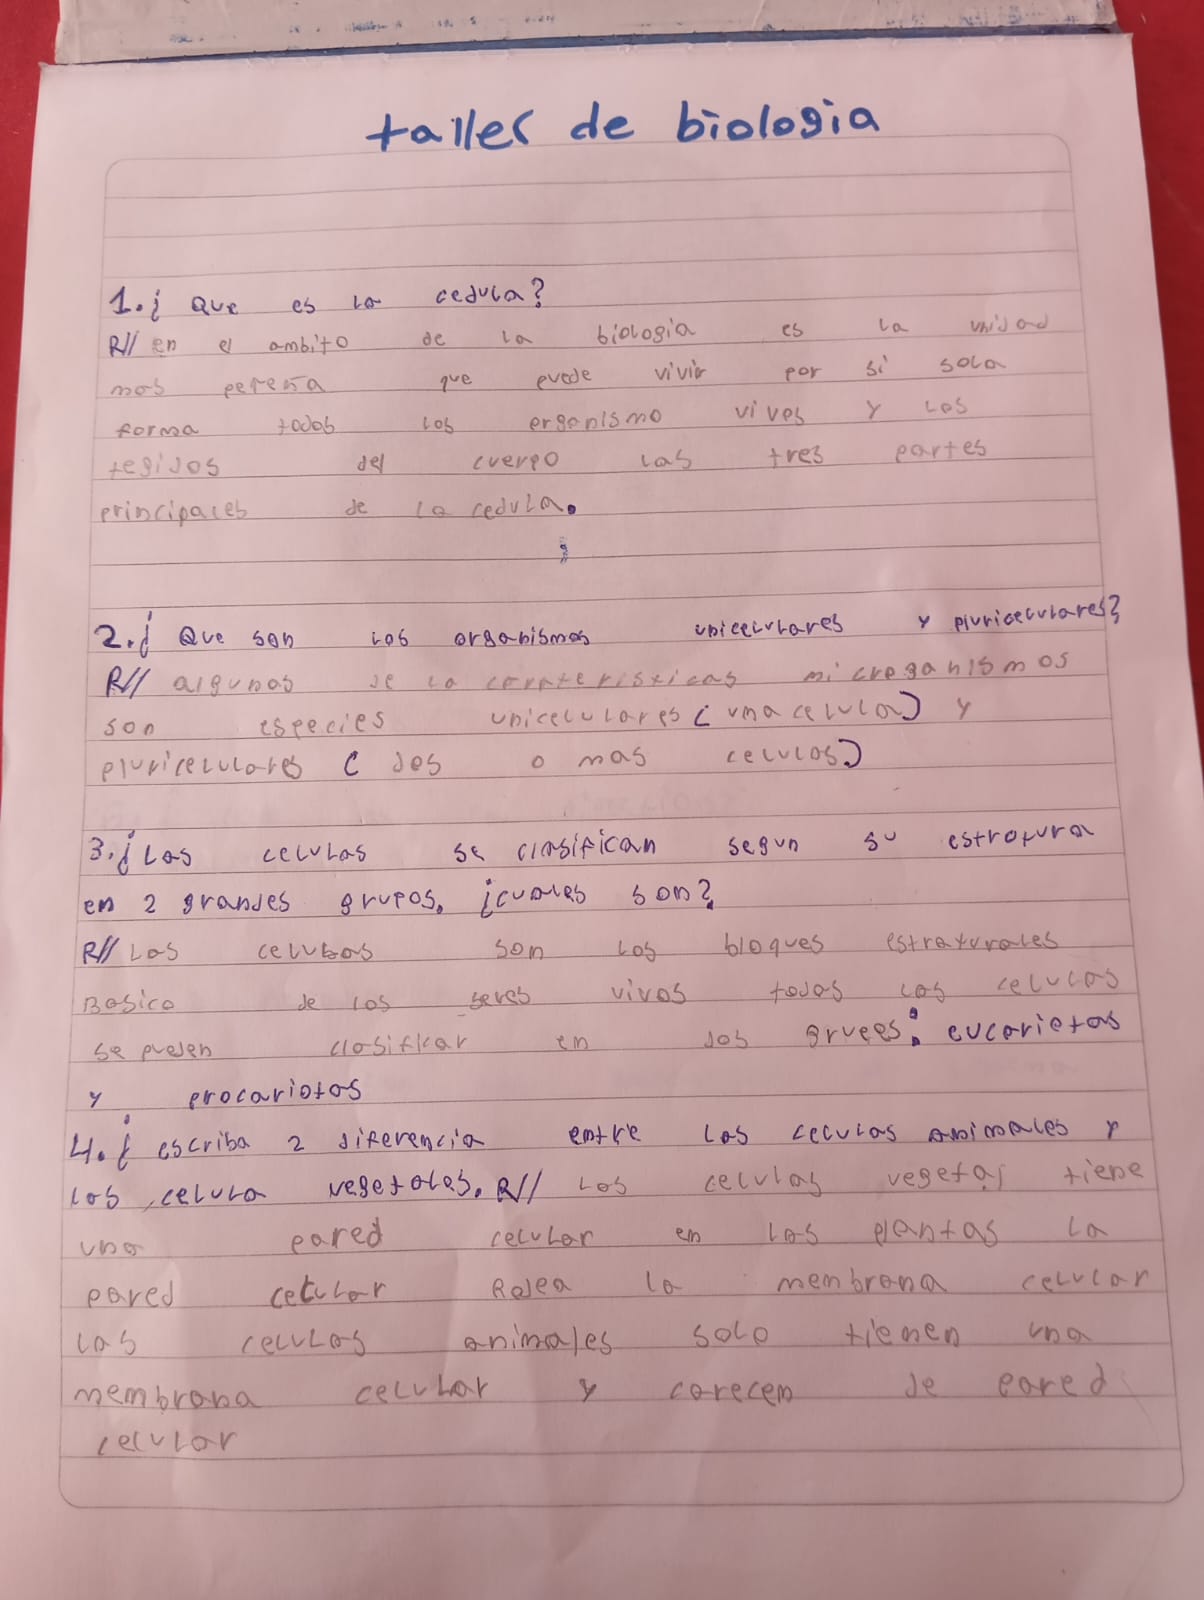 taller de biologia
1.¿ Que es la cedula?
R// en el ambito de la biologia es la unidad
mas peqeña que puede vivir por si sola
forma todos los organismo vivos y los
tegidos del cuerpo las tres partes
principales de la cedula.
2.¿ Que son los organismos unicelulares y pluricelulares?
R// algunos de la carateristicas microganismos
son especies unicelulares (una celula) y
pluricelulares ( dos o mas celulas)
3.¿ Las celulas se clasifican segun su estrotura
en 2 grandes grupos. ¿cuales son?
R// Las celulas son los bloques estraturales
Basico de los seres vivos todas las celulas
se pueden clasificar en dos grupos: eucariotas
y procariotas
4.¿ escriba 2 diferencia entre las celulas animales y
las celula vegetales. R// Las celulas vegetal tiene
una pared celular en las plantas la
pared celular Rodea la membrana celular
las celulas animales solo tienen una
membrana celular y carecen de pared
celular